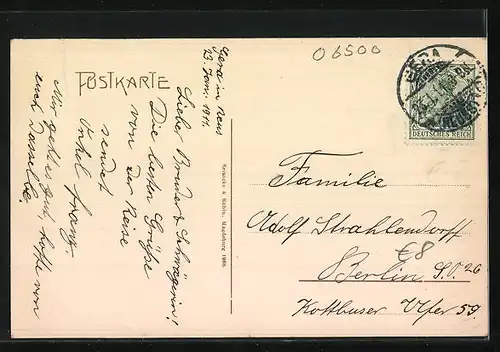 O6500
GERA
DEUTSCHES REICH
POSTKARTE
Gera in Reuss
23. Juni 1911.
Liebe Bruder & Schwägerin!
Die besten Grüße
von der Reise
sendet
Onkel Franz.
Mir geht es gut, hoffe von
euch dasselbe.
Familie
Adolf Strahlendorff
€8
Berlin S.O. 26
Kottbuser Ufer 59.